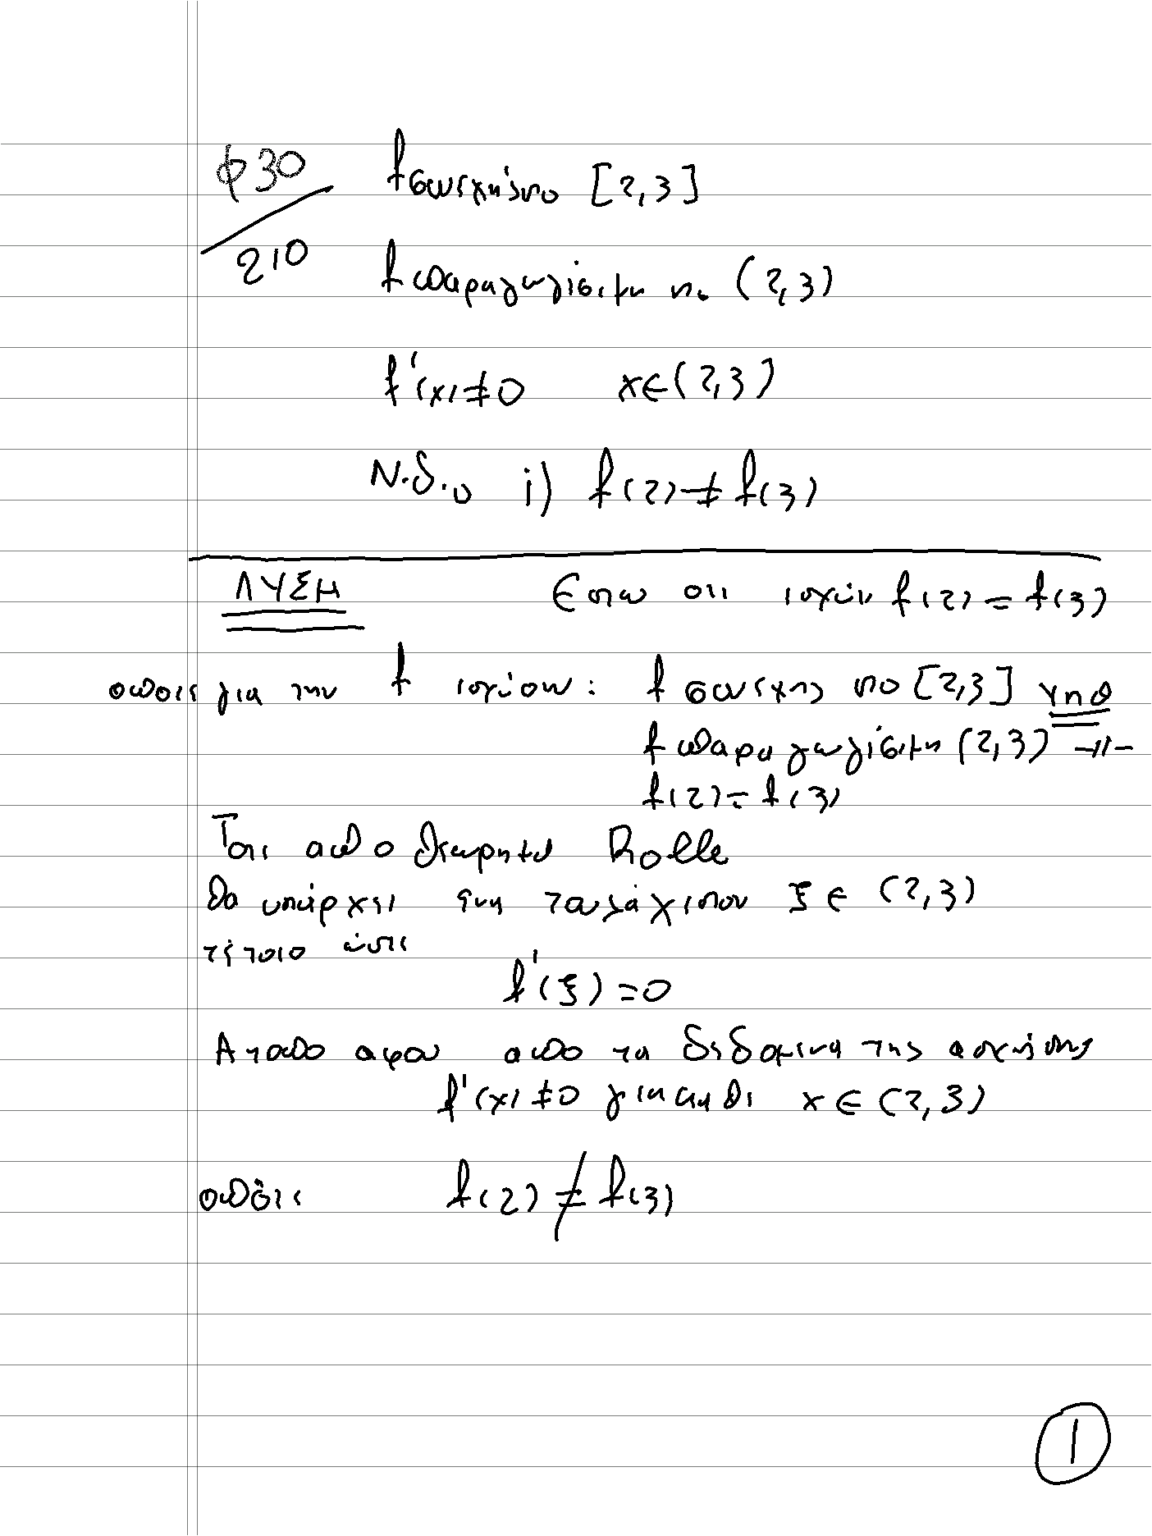 φ30
210
f συνεχής στο [2,3]
f παραγωγίσιμη στο (2,3)
f'(x)≠0 x∈(2,3)
Ν.δ.ο i) f(2)≠f(3)
ΛΥΣΗ Εστω οτι ισχύει f(2)=f(3)
οποτε για την f ισχύουν: f συνεχης στο [2,3] υποθ
f παραγωγίσιμη (2,3) -//-
f(2)=f(3)
Τοτε απο θεωρημα Rolle
θα υπάρχει ένα τουλάχιστον ξ∈(2,3)
τέτοιο ώστε
f'(ξ)=0
Ατοπο αφου απο τα δεδομενα της ασκήσης
f'(x)≠0 για καθε x∈(2,3)
οπότε f(2)≠f(3)
1